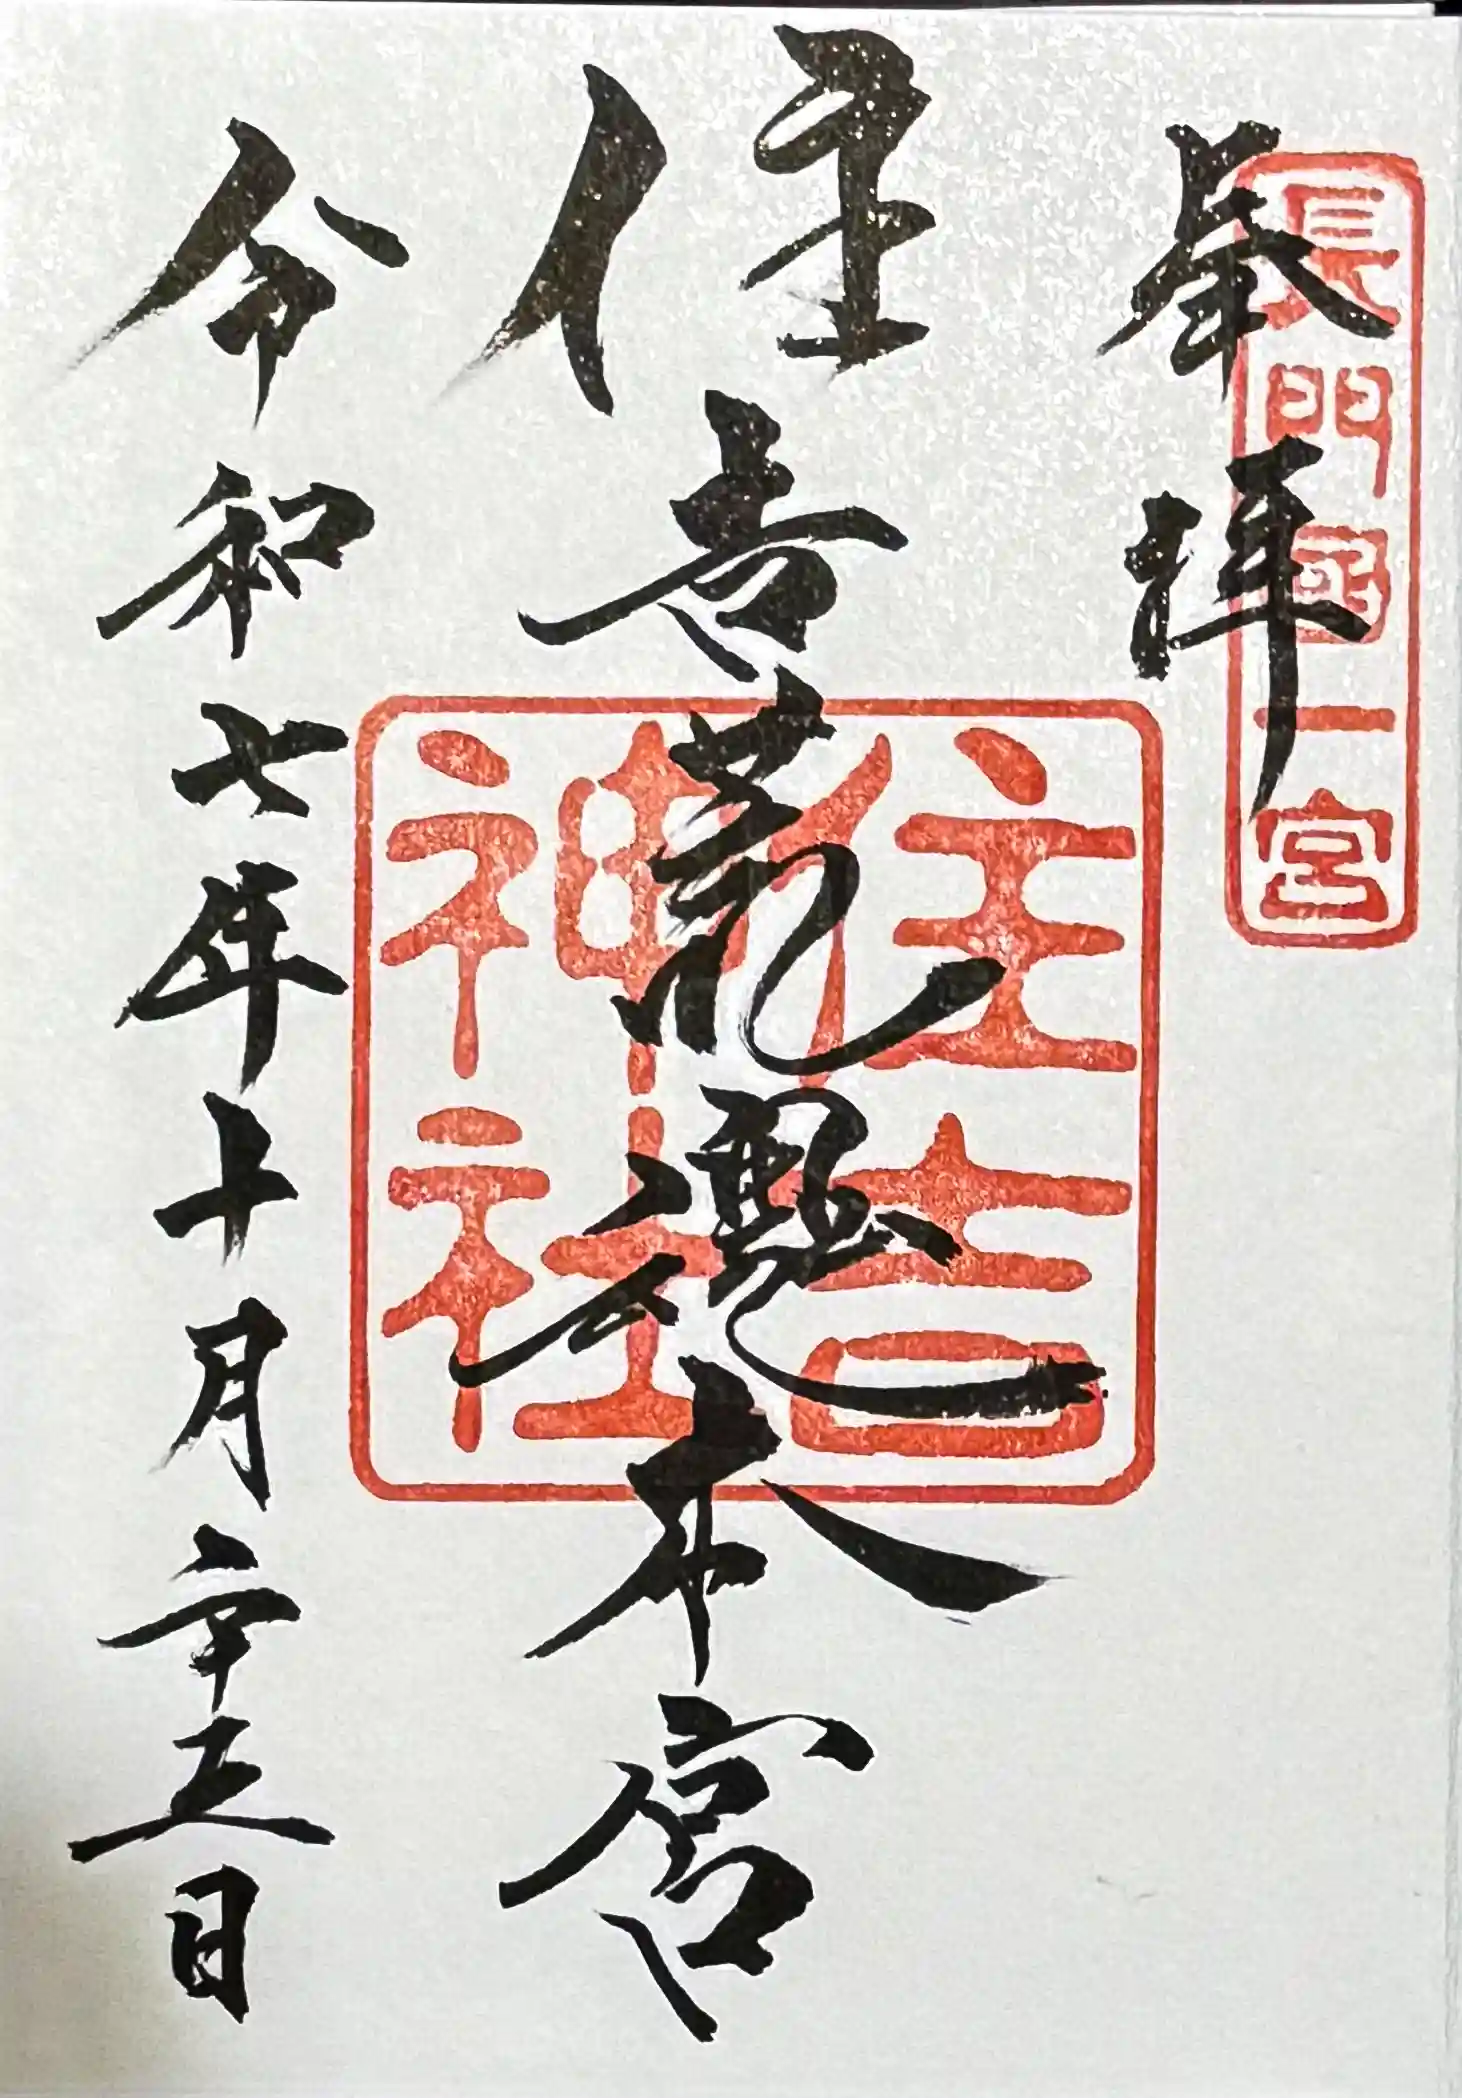 奉拝
長門國一宮
住吉荒魂本宮
住吉
神社
令和七年十月二十五日